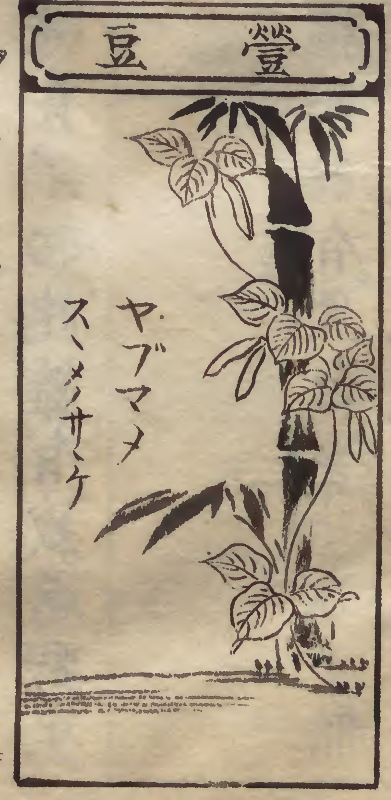 䝁豆
ヤブマメ
スヽメノサヽケ